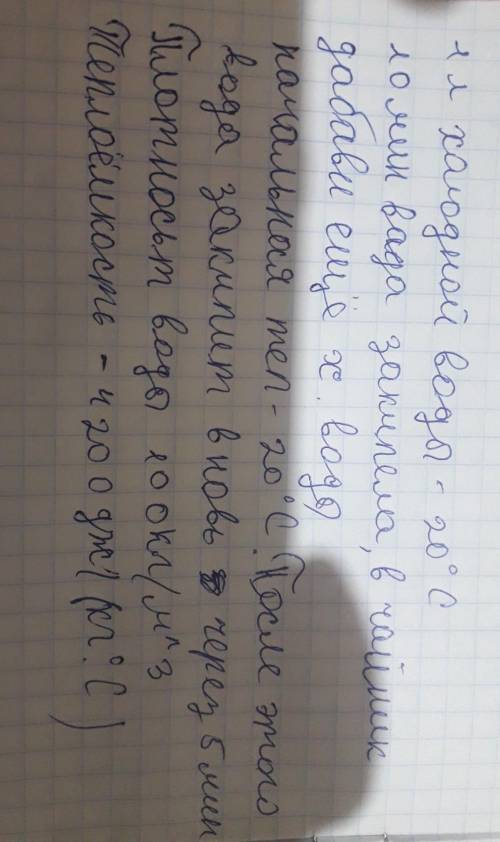 1 л холодной воды - 20°C
10 мин вада закипела, в чайник
дабавил ещё х. воды
начальноя теп - 20°C. После этого
вода закипит вновь через 5 мин
Плотносьт воды 100кг/м^3
Теплоёмкость - 4200дж/(кг°C)